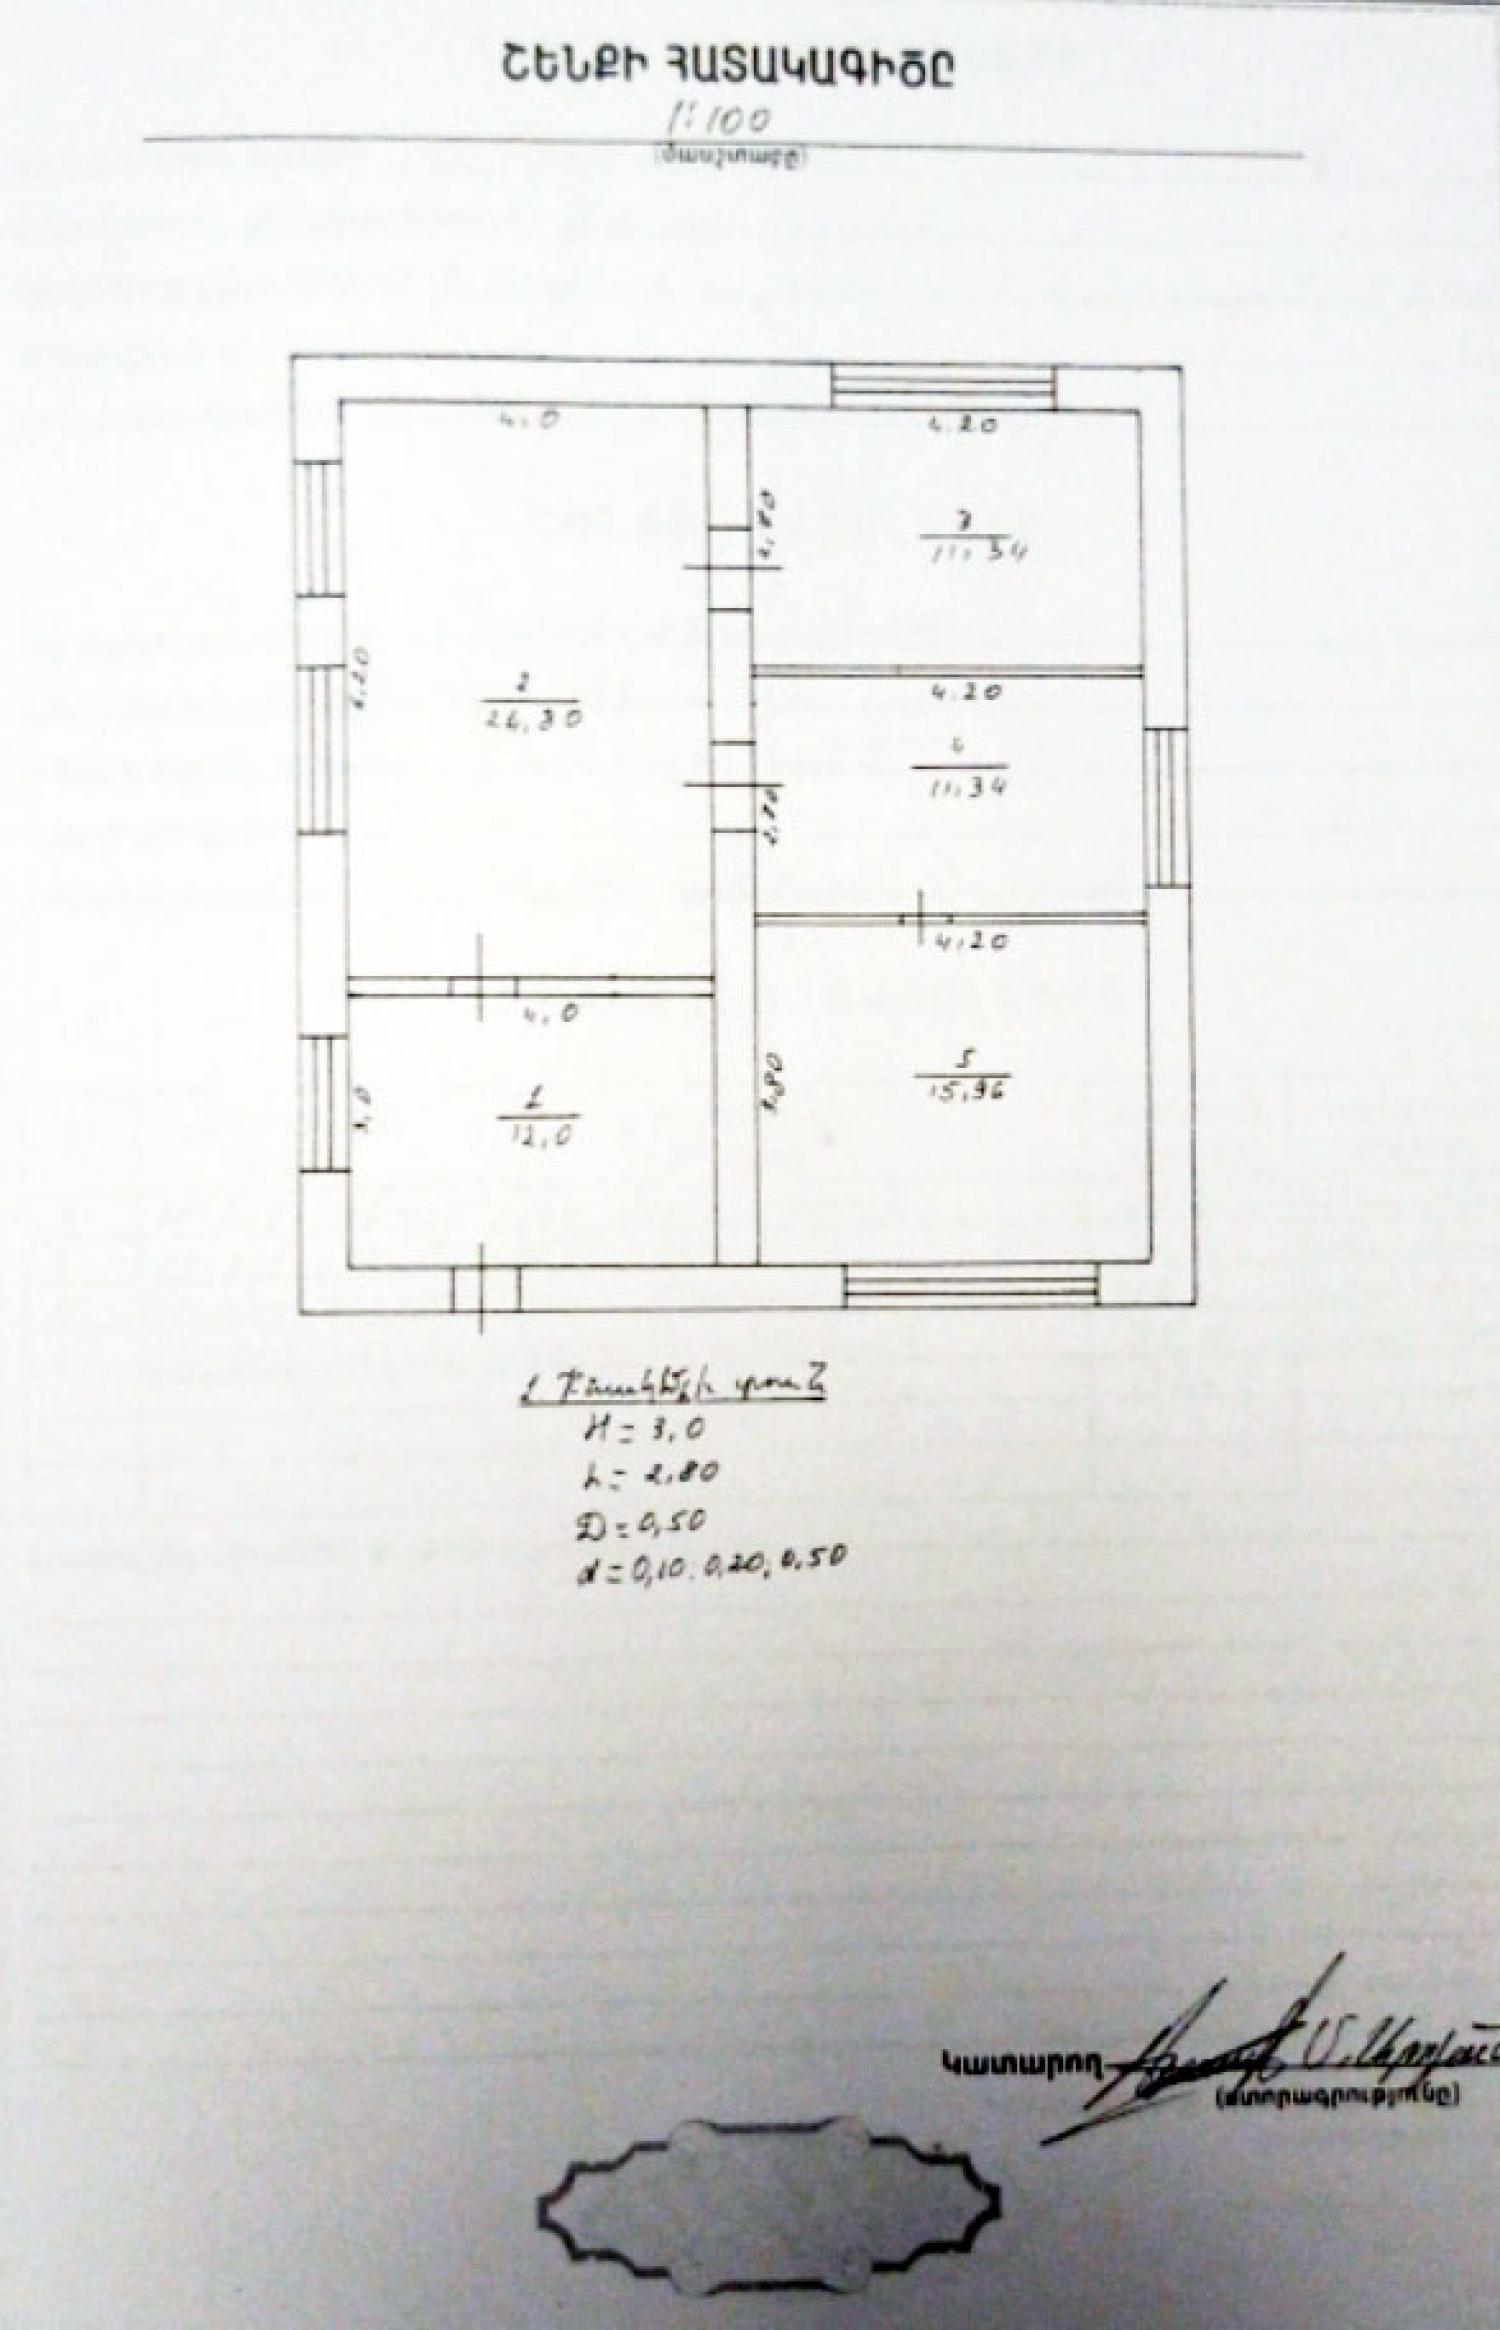 ՇԵՆՔԻ ՀԱՏԱԿԱԳԻԾԸ
1:100
(մասշտաբը)
4,0
4.20
2,70
3
11,34
6,20
2
24,80
4.20
4
11,34
2,70
4,20
4,0
3,80
5
15,96
3,0
1
12,0
1 Բնակելի տուն
H = 3,0
h = 2,80
D = 0,50
d = 0,10. 0,20, 0,50
Կատարող
(ստորագրությունը)